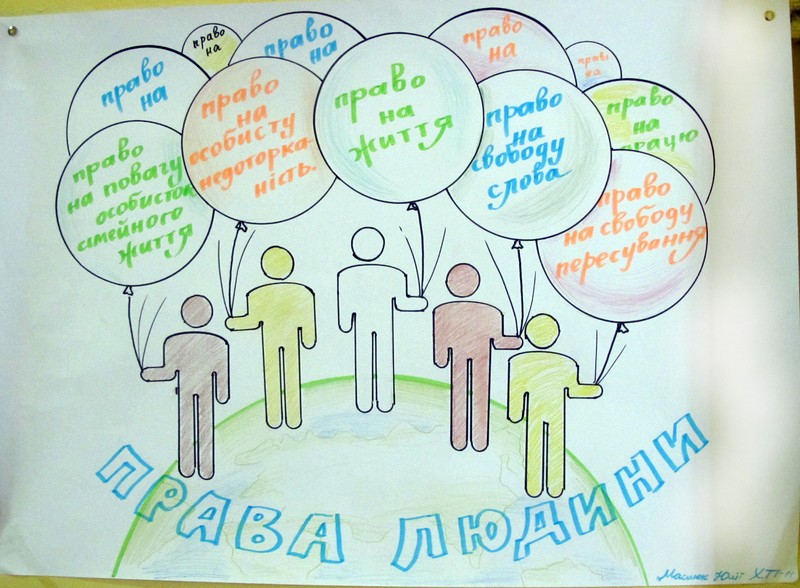 право
на
право
на
право
на
право
на
право
на
право
на
особисту
недоторка-
ність.
право
на
життя
право
на
свободу
слова
право
на
працю
право
на повагу
особистого
сімейного
життя
право
на свободу
пересування
ПРАВА ЛЮДИНИ